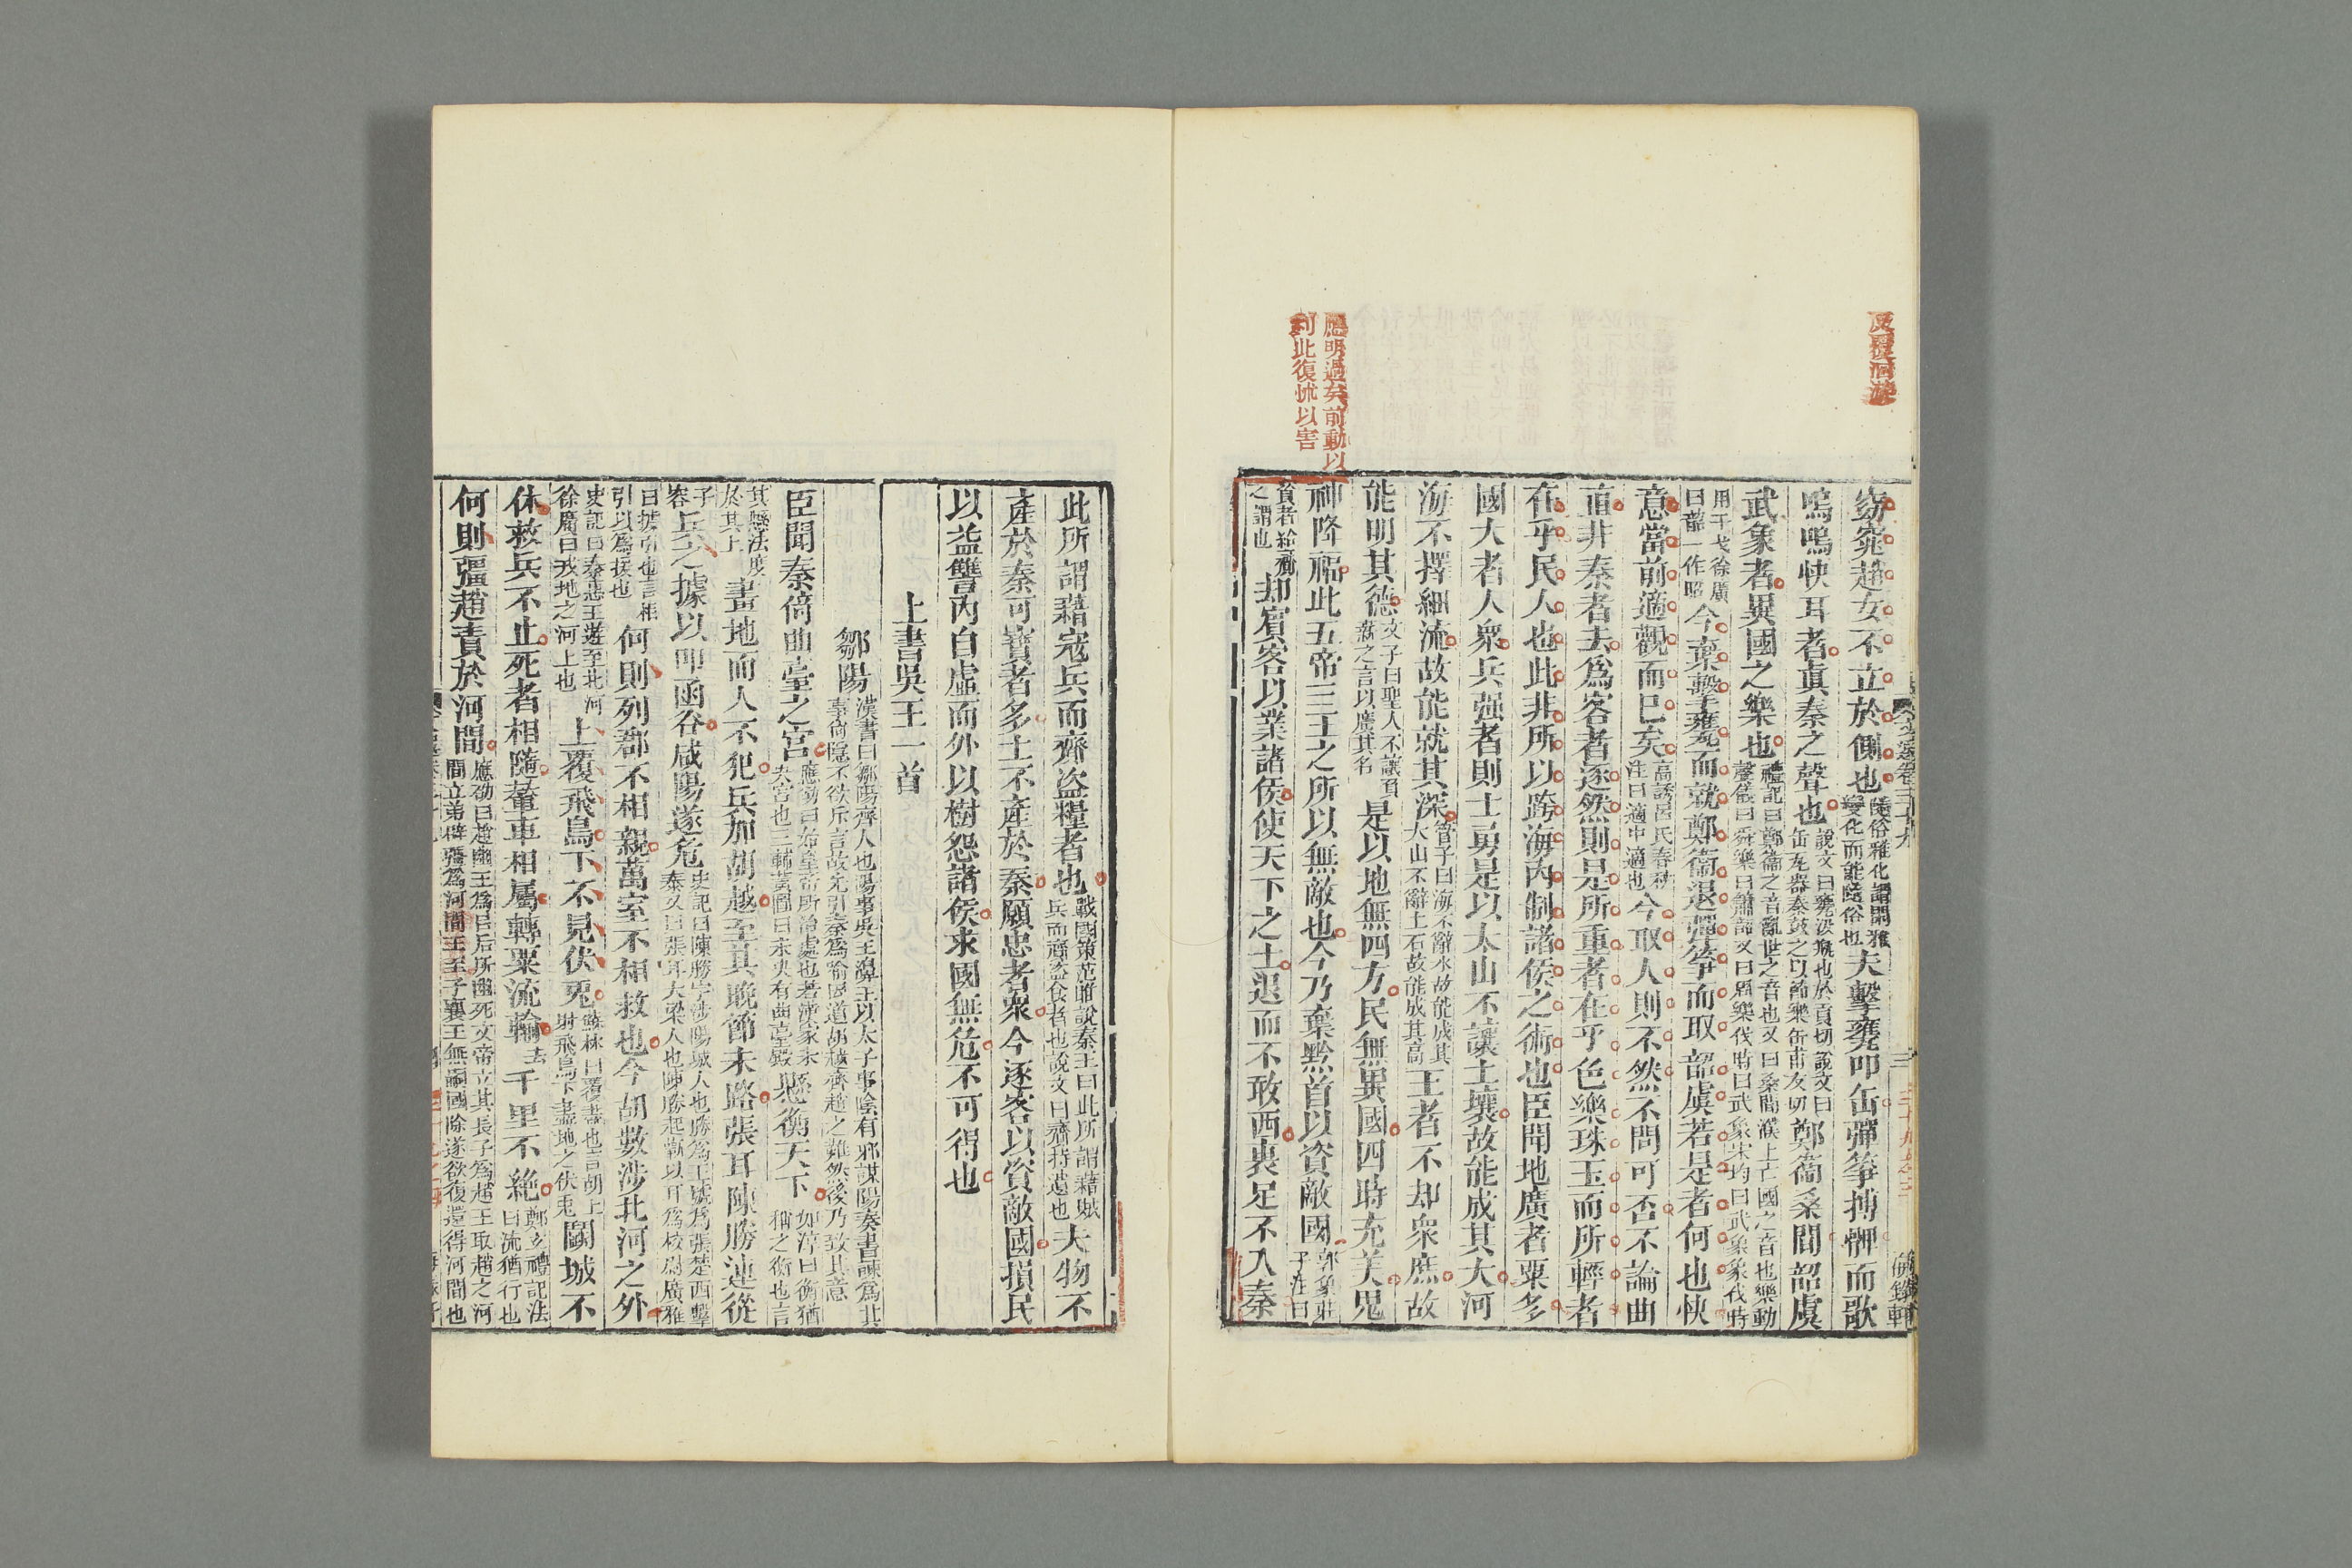 反覆洞■
應明過矣前動以
何此復怵以害
窈窕趙女不立於側也隨俗雅化謂閑雅變化而能隨俗也夫擊甕叩缶彈箏搏髀而歌
嗚嗚快耳者真秦之聲也說文曰甕汲瓶也於貢切說文曰缶瓦器秦鼓之以節樂缶甫友切鄭衞桑間韶虞
武象者異國之樂也禮記曰鄭衞之音亂世之音也又曰桑間濮上亡國之音也樂動聲儀曰舜樂曰簫韶又曰周樂伐時曰武象宋均曰武象象伐時
用干戈徐廣曰韶一作昭今棄擊甕而就鄭衞退彈箏而取韶虞若是者何也快
意當前適觀而已矣高誘呂氏春秋注曰適中適也今取人則不然不問可否不論曲
直非秦者去爲客者逐然則是所重者在乎色樂珠玉而所輕者
在乎民人也此非所以跨海內制諸侯之術也臣聞地廣者粟多
國大者人衆兵强者則士勇是以太山不讓土壤故能成其大河
海不擇細流故能就其深管子曰海不辭水故能成其大山不辭土石故能成其高王者不却衆庶故
能明其德文子曰聖人不讓負薪之言以廣其名是以地無四方民無異國四時充美鬼
神降福此五帝三王之所以無敵也今乃棄黔首以資敵國郭象莊子注曰
資者給濟之謂也却賓客以業諸侯使天下之士退而不敢西裹足不入秦
此所謂藉寇兵而齎盜糧者也戰國策范雎說秦王曰此所謂藉賊兵而齎盜食者也說文曰齎持遺也夫物不
產於秦可寶者多士不產於秦願忠者衆今逐客以資敵國損民
以益讐內自虛而外以樹怨諸侯求國無危不可得也
上書吳王一首
鄒陽漢書曰鄒陽齊人也陽事吳王濞王以太子事陰有邪謀陽奏書諫爲其事尙隱不欲斥言故先引秦爲喻因道胡越齊趙之難然後乃致其意
臣聞秦倚曲臺之宮應劭曰始皇帝所治處也若漢家未央宮也三輔黃圖曰未央有曲臺殿懸衡天下如淳曰衡猶稱之衡也言
其懸法度於其上畫地而人不犯兵加胡越至其晚節末路張耳陳勝連從
子容兵之據以叩函谷咸陽遂危史記曰陳勝字涉陽城人也勝爲王號爲張楚西擊秦又曰張耳大梁人也陳勝起蘄以耳爲校尉廣雅
曰據引也言相引以爲援也何則列郡不相親萬室不相救也今胡數涉北河之外
史記曰秦惠王遊至北河徐廣曰戎地之河上也上覆飛鳥下不見伏兎蘇林曰覆盡也言胡上射飛鳥下盡地之伏兎鬬城不
休救兵不止死者相隨輦車相屬轉粟流輸去千里不絶鄭玄禮記注曰流猶行也
何則彊趙責於河間應劭曰趙幽王爲呂后所幽死文帝立其長子爲趙王取趙之河間立弟辟彊爲河間王至子襄王無嗣國除遂欲復還得河間也